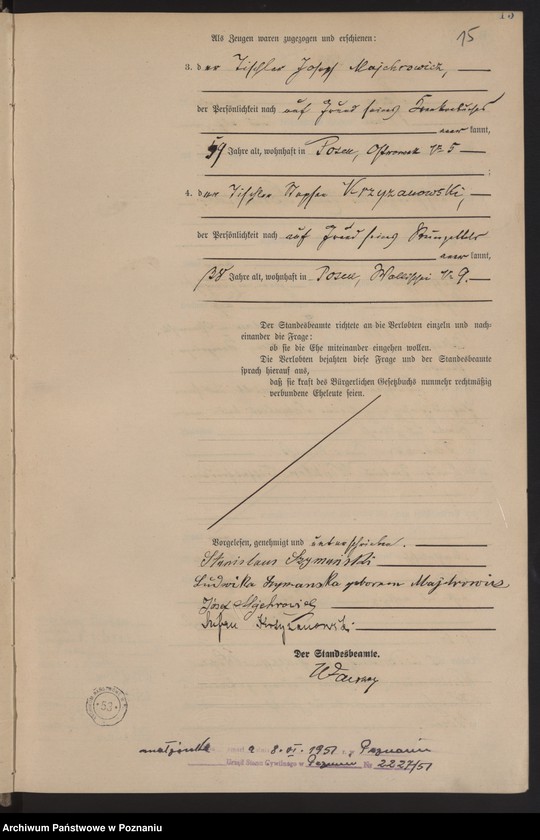 15
Als Zeugen waren zugezogen und erschienen:
3. der Tischler Josef Majchrowicz,
der Persönlichkeit nach auf Grund seines
kannt,
59 Jahre alt, wohnhaft in Posen, Ostrowek Nr 5
;
4. der Tischler Stephan Krzyzanowski,
der Persönlichkeit nach auf Grund seines
kannt,
38 Jahre alt, wohnhaft in Posen, Wallischei Nr 9.
Der Standesbeamte richtete an die Verlobten einzeln und nach-
einander die Frage:
ob sie die Ehe miteinander eingehen wollen.
Die Verlobten bejahten diese Frage und der Standesbeamte
sprach hierauf aus,
daß sie kraft des Bürgerlichen Gesetzbuchs nunmehr rechtmäßig
verbundene Eheleute seien.
Vorgelesen, genehmigt und unterschrieben.
Stanislaus Szymański
Ludwika Szymanska geborene Majchrowicz
Józef Majchrowicz
Stefan Krzyżanowski
Der Standesbeamte.
53
małżonka a 8. VI. 1951 Poznaniu
Urząd Stanu Cywilnego w Poznaniu Nr 2227/51
Archiwum Państwowe w Poznaniu